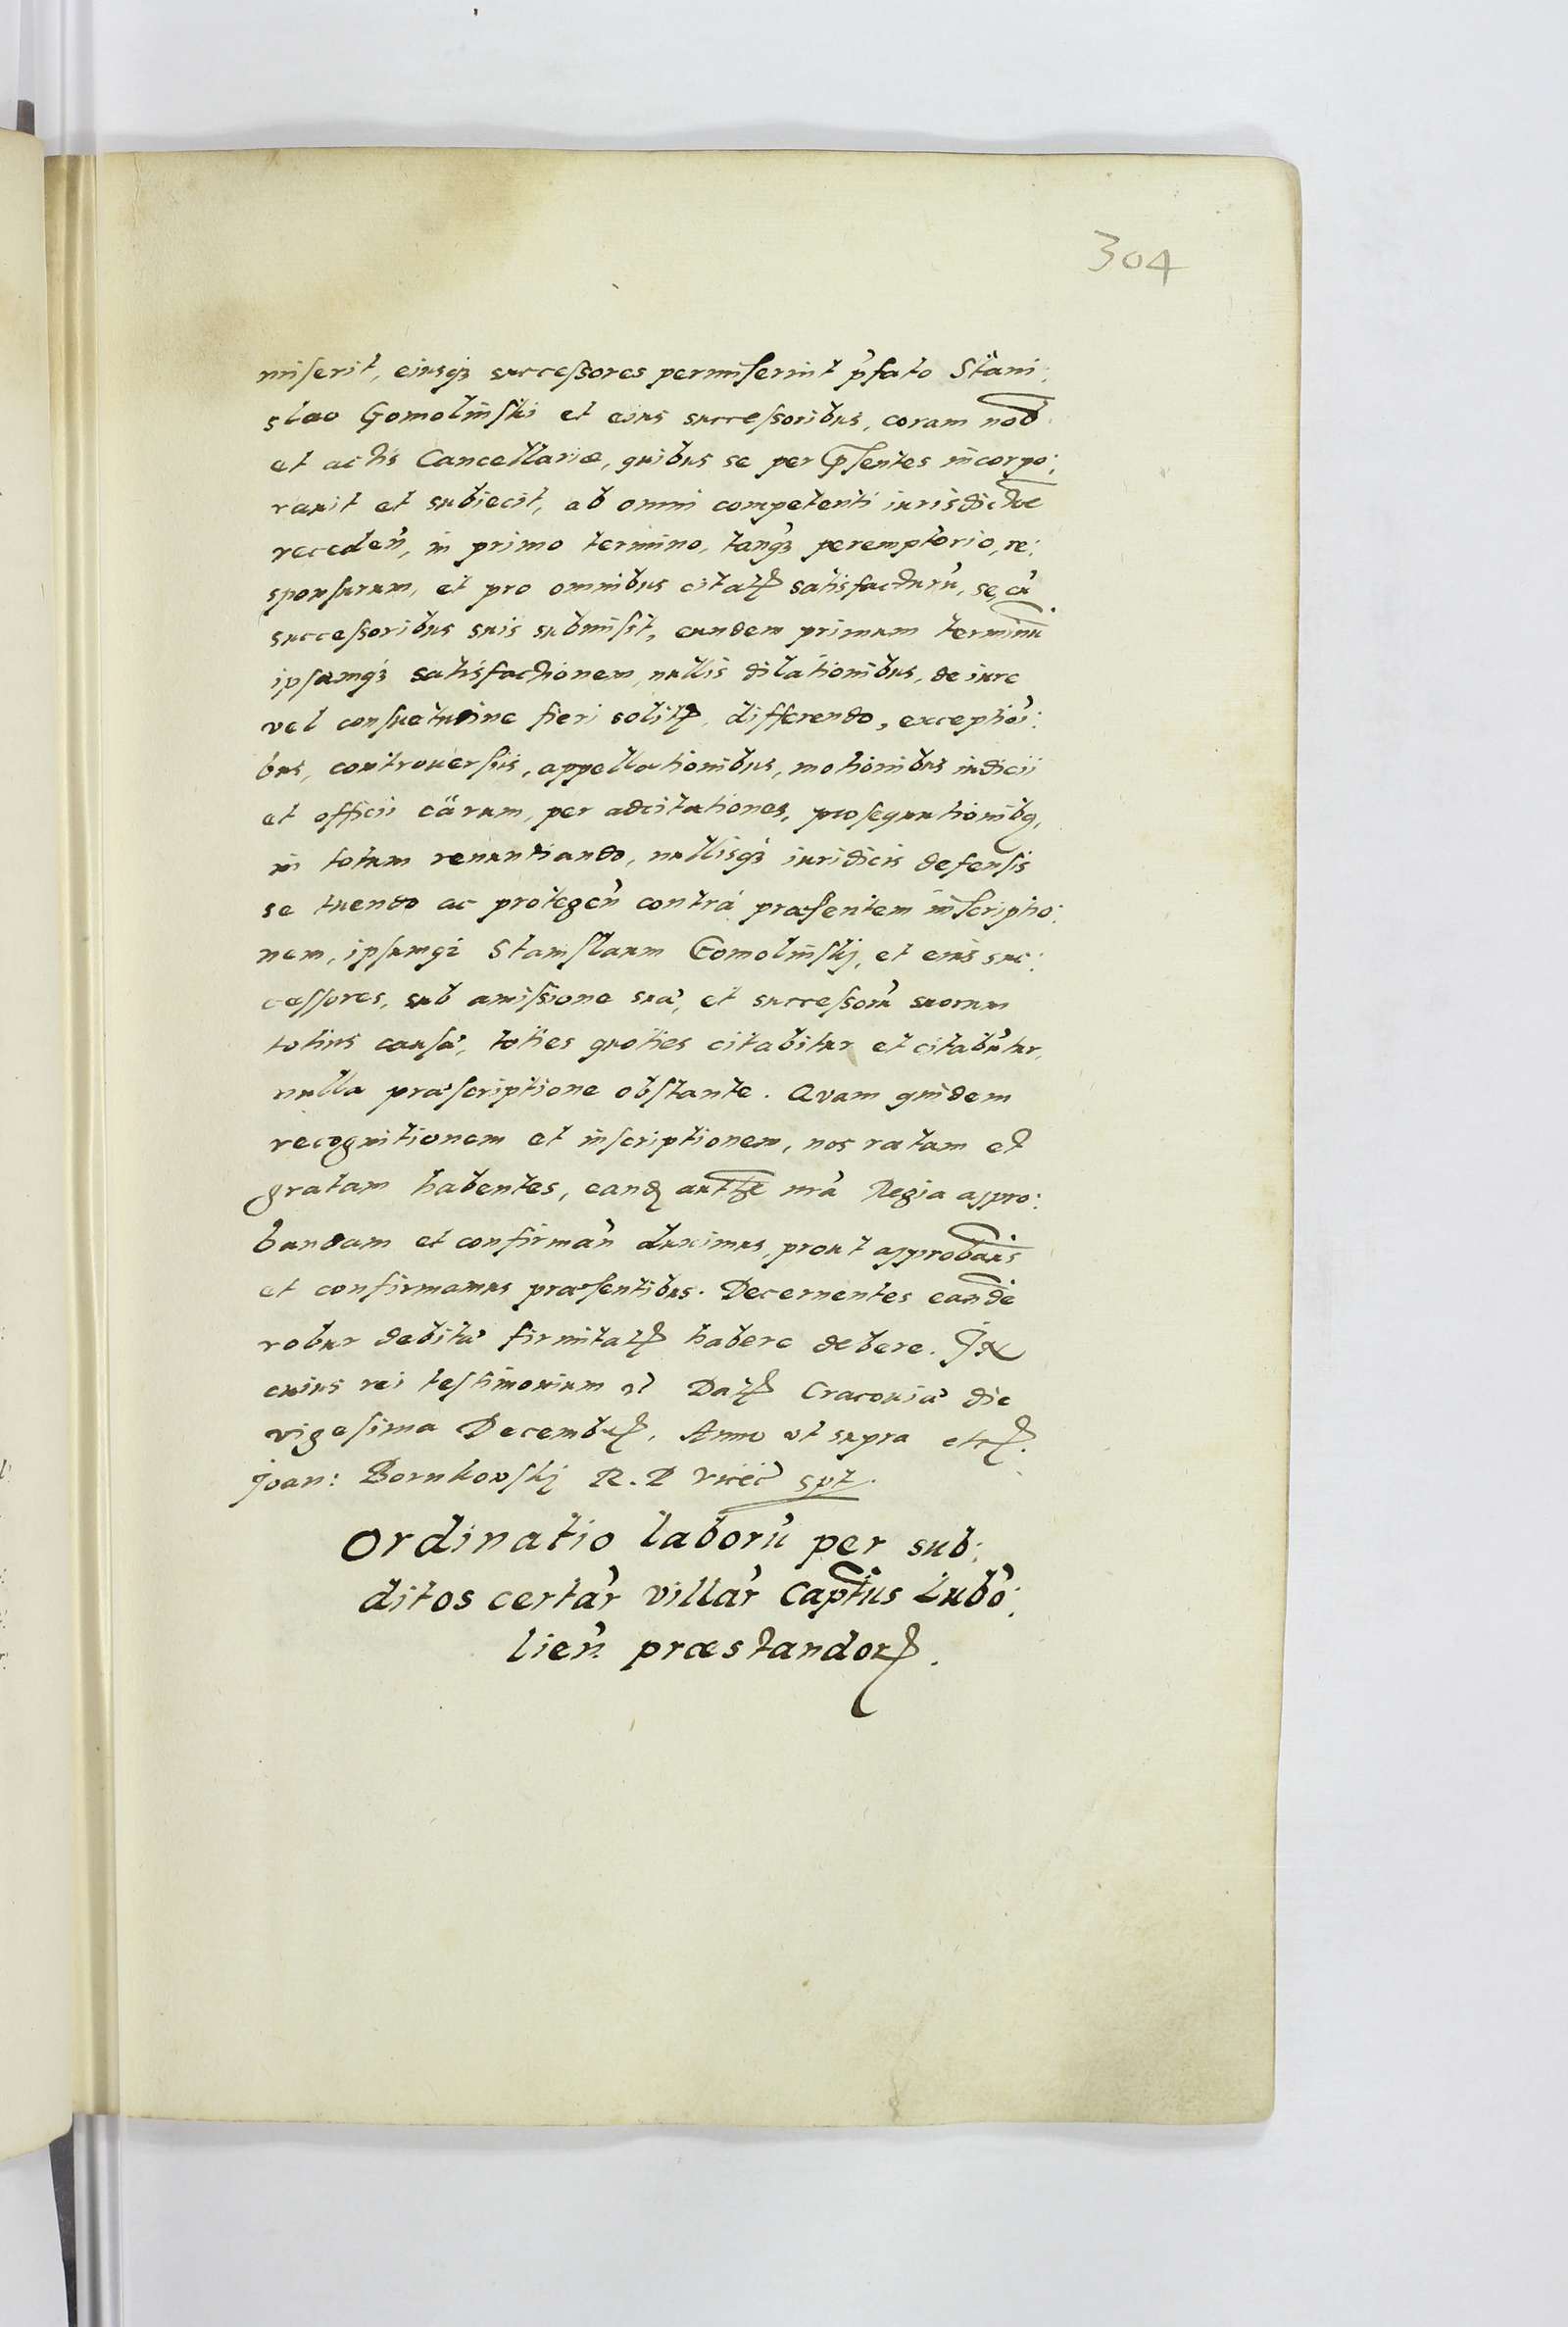 304
miserit, eiusq3 successores permiserint p̓fato Stani:
slao Gomolinski et eius successoribus, coram nob
et actis Cancellariæ, quibus se per p̄sentes incorpo:
rauit et subiecit, ab omni competenti iurisdictõe
receden̓, in primo termino, tanq̓3 peremptorio, re:
sponsurum, et pro omnibus citatꝭ satisfacturu̓, se, cu̓
successoribus suis submisit, eundem primum terminũ
ipsamq3 satisfactionem, nullis dilationibus, de iure
vel consuetudine fieri solitꝭ, differendo, exceptioi̓:
bus, controuersiis, appellationibus, motionibus iudicii
et officii cārum, per adcitationes, prosequutionibꝗ,
in totum renuntiando, nullisq3 iuridicis defensis
se tuendo ac protegen̓ contrà præsentem inscriptio:
nem, ipsumq3 Stanislaum Gomolinskj, et eius suc:
cessores, sub amissione suæ, et successoru̓ suorum
totius causæ, toties quoties citabitur et citabu̓tur,
nulla præscriptione obstante. Quam quidem
recognitionem et inscriptionem, nos ratam et
gratam habentes, eandꝭ autħte nr̓a Regia appro:
bandam et confirman̓ duximus, prout approbam̃us
et confirmamus præsentibus. Decernentes eandẽ
robur debitæ firmitatꝭ habere debere. In
cuius rei testimonium Datꝭ Cracouiæ die
vigesima Decembrꝭ. Anno vt supra etcꝭ.
Joan: Bornkowskj R. P Vicēc̓ spt.
Ordinatio laboru̓ per sub:
ditos certar̓ villar̓ Captũs Lubo̓:
lien̓ præstandorꝭ.